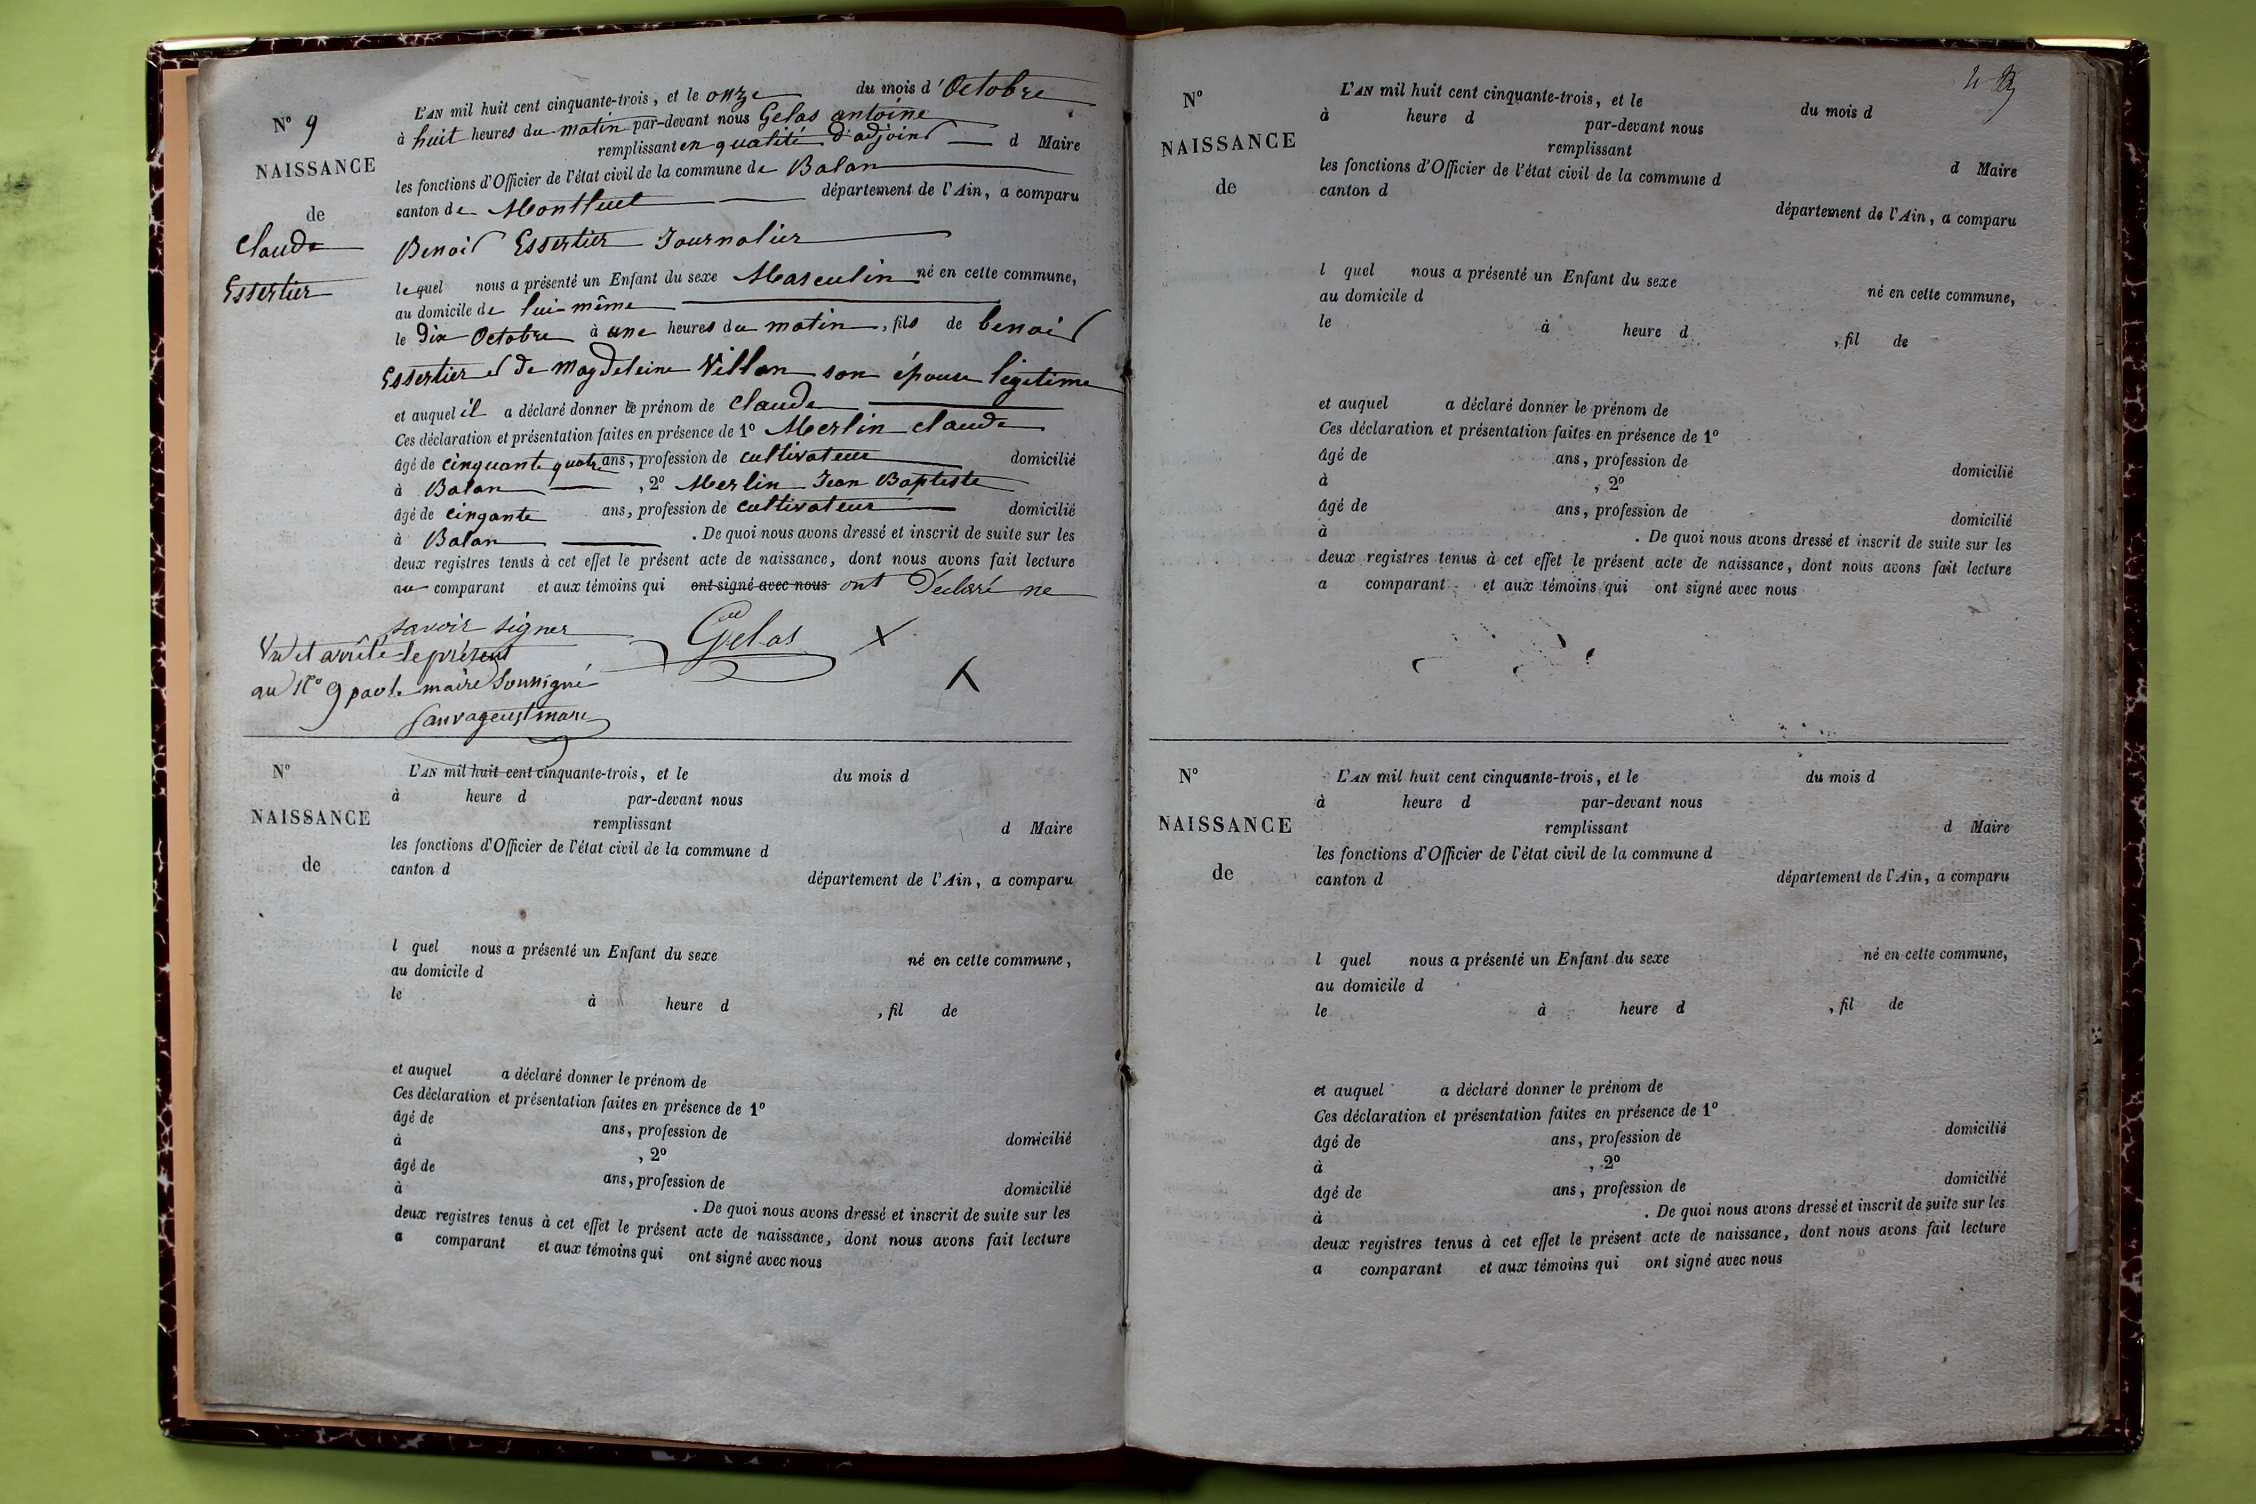 N° 9
NAISSANCE
de
Claude
Essertier
L'AN mil huit cent cinquante-trois, et le onze du mois d'Octobre
à huit heures du matin par-devant nous Gelas antoine
remplissant en qualité d'adjoint d Maire
les fonctions d'Officier de l'état civil de la commune de Balan
canton de Montluel département de l'Ain, a comparu
Benoit Essertier Journalier
lequel nous a présenté un Enfant du sexe Masculin né en cette commune,
au domicile de lui-même
le Dix Octobre à une heures du matin, fils de benoit
Essertier et de Magdeleine Villon son épouse légitime
et auquel il a déclaré donner le prénom de Claude
Ces déclaration et présentation faites en présence de 1° Merlin claude
âgé de cinquante quatre ans, profession de cultivateur domicilié
à Balan , 2° Merlin Jean Baptiste
âgé de cinqante ans, profession de cultivateur domicilié
à Balan . De quoi nous avons dressé et inscrit de suite sur les
deux registres tenus à cet effet le présent acte de naissance, dont nous avons fait lecture
au comparant et aux témoins qui ont signé avec nous ont Déclaré ne
savoir signer
Gelas
Vu et arrêté le présent
au N° 9 par le maire soussigné
N°
NAISSANCE
de
L'AN mil huit cent cinquante-trois, et le du mois d
à heure d par-devant nous
remplissant d Maire
les fonctions d'Officier de l'état civil de la commune d
canton d département de l'Ain, a comparu
l quel nous a présenté un Enfant du sexe né en cette commune,
au domicile d
le à heure d , fil de
et auquel a déclaré donner le prénom de
Ces déclaration et présentation faites en présence de 1°
âgé de ans, profession de domicilié
à , 2°
âgé de ans, profession de domicilié
à . De quoi nous avons dressé et inscrit de suite sur les
deux registres tenus à cet effet le présent acte de naissance, dont nous avons fait lecture
a comparant et aux témoins qui ont signé avec nous
N°
NAISSANCE
de
L'AN mil huit cent cinquante-trois, et le du mois d
à heure d par-devant nous
remplissant d Maire
les fonctions d'Officier de l'état civil de la commune d
canton d département de l'Ain, a comparu
l quel nous a présenté un Enfant du sexe né en cette commune,
au domicile d
le à heure d , fil de
et auquel a déclaré donner le prénom de
Ces déclaration et présentation faites en présence de 1°
âgé de ans, profession de domicilié
à , 2°
âgé de ans, profession de domicilié
à . De quoi nous avons dressé et inscrit de suite sur les
deux registres tenus à cet effet le présent acte de naissance, dont nous avons fait lecture
a comparant et aux témoins qui ont signé avec nous
N°
NAISSANCE
de
L'AN mil huit cent cinquante-trois, et le du mois d
à heure d par-devant nous
remplissant d Maire
les fonctions d'Officier de l'état civil de la commune d
canton d département de l'Ain, a comparu
l quel nous a présenté un Enfant du sexe né en cette commune,
au domicile d
le à heure d , fil de
et auquel a déclaré donner le prénom de
Ces déclaration et présentation faites en présence de 1°
âgé de ans, profession de domicilié
à , 2°
âgé de ans, profession de domicilié
à . De quoi nous avons dressé et inscrit de suite sur les
deux registres tenus à cet effet le présent acte de naissance, dont nous avons fait lecture
a comparant et aux témoins qui ont signé avec nous